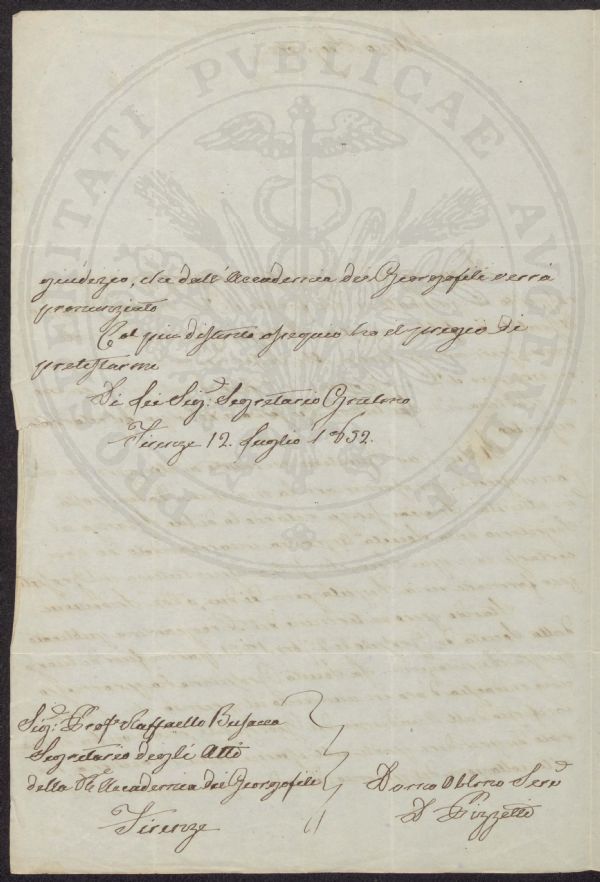 PROSPERITATI PUBLICAE AUGENDAE
giudizio, che dall' Accademia dei Georgofili verrà
pronunziato
Col più distinto ossequio ho il pregio di
protestarmi
Di Lei Sig.r Segretario Gratmo
Firenze 12. Luglio 1852.
Sig.r Prof.e Raffaello Busacca
Segretario degli Atti
della R.e Accademia dei Georgofili
Firenze
Oblmo Serv
D Pizzetti